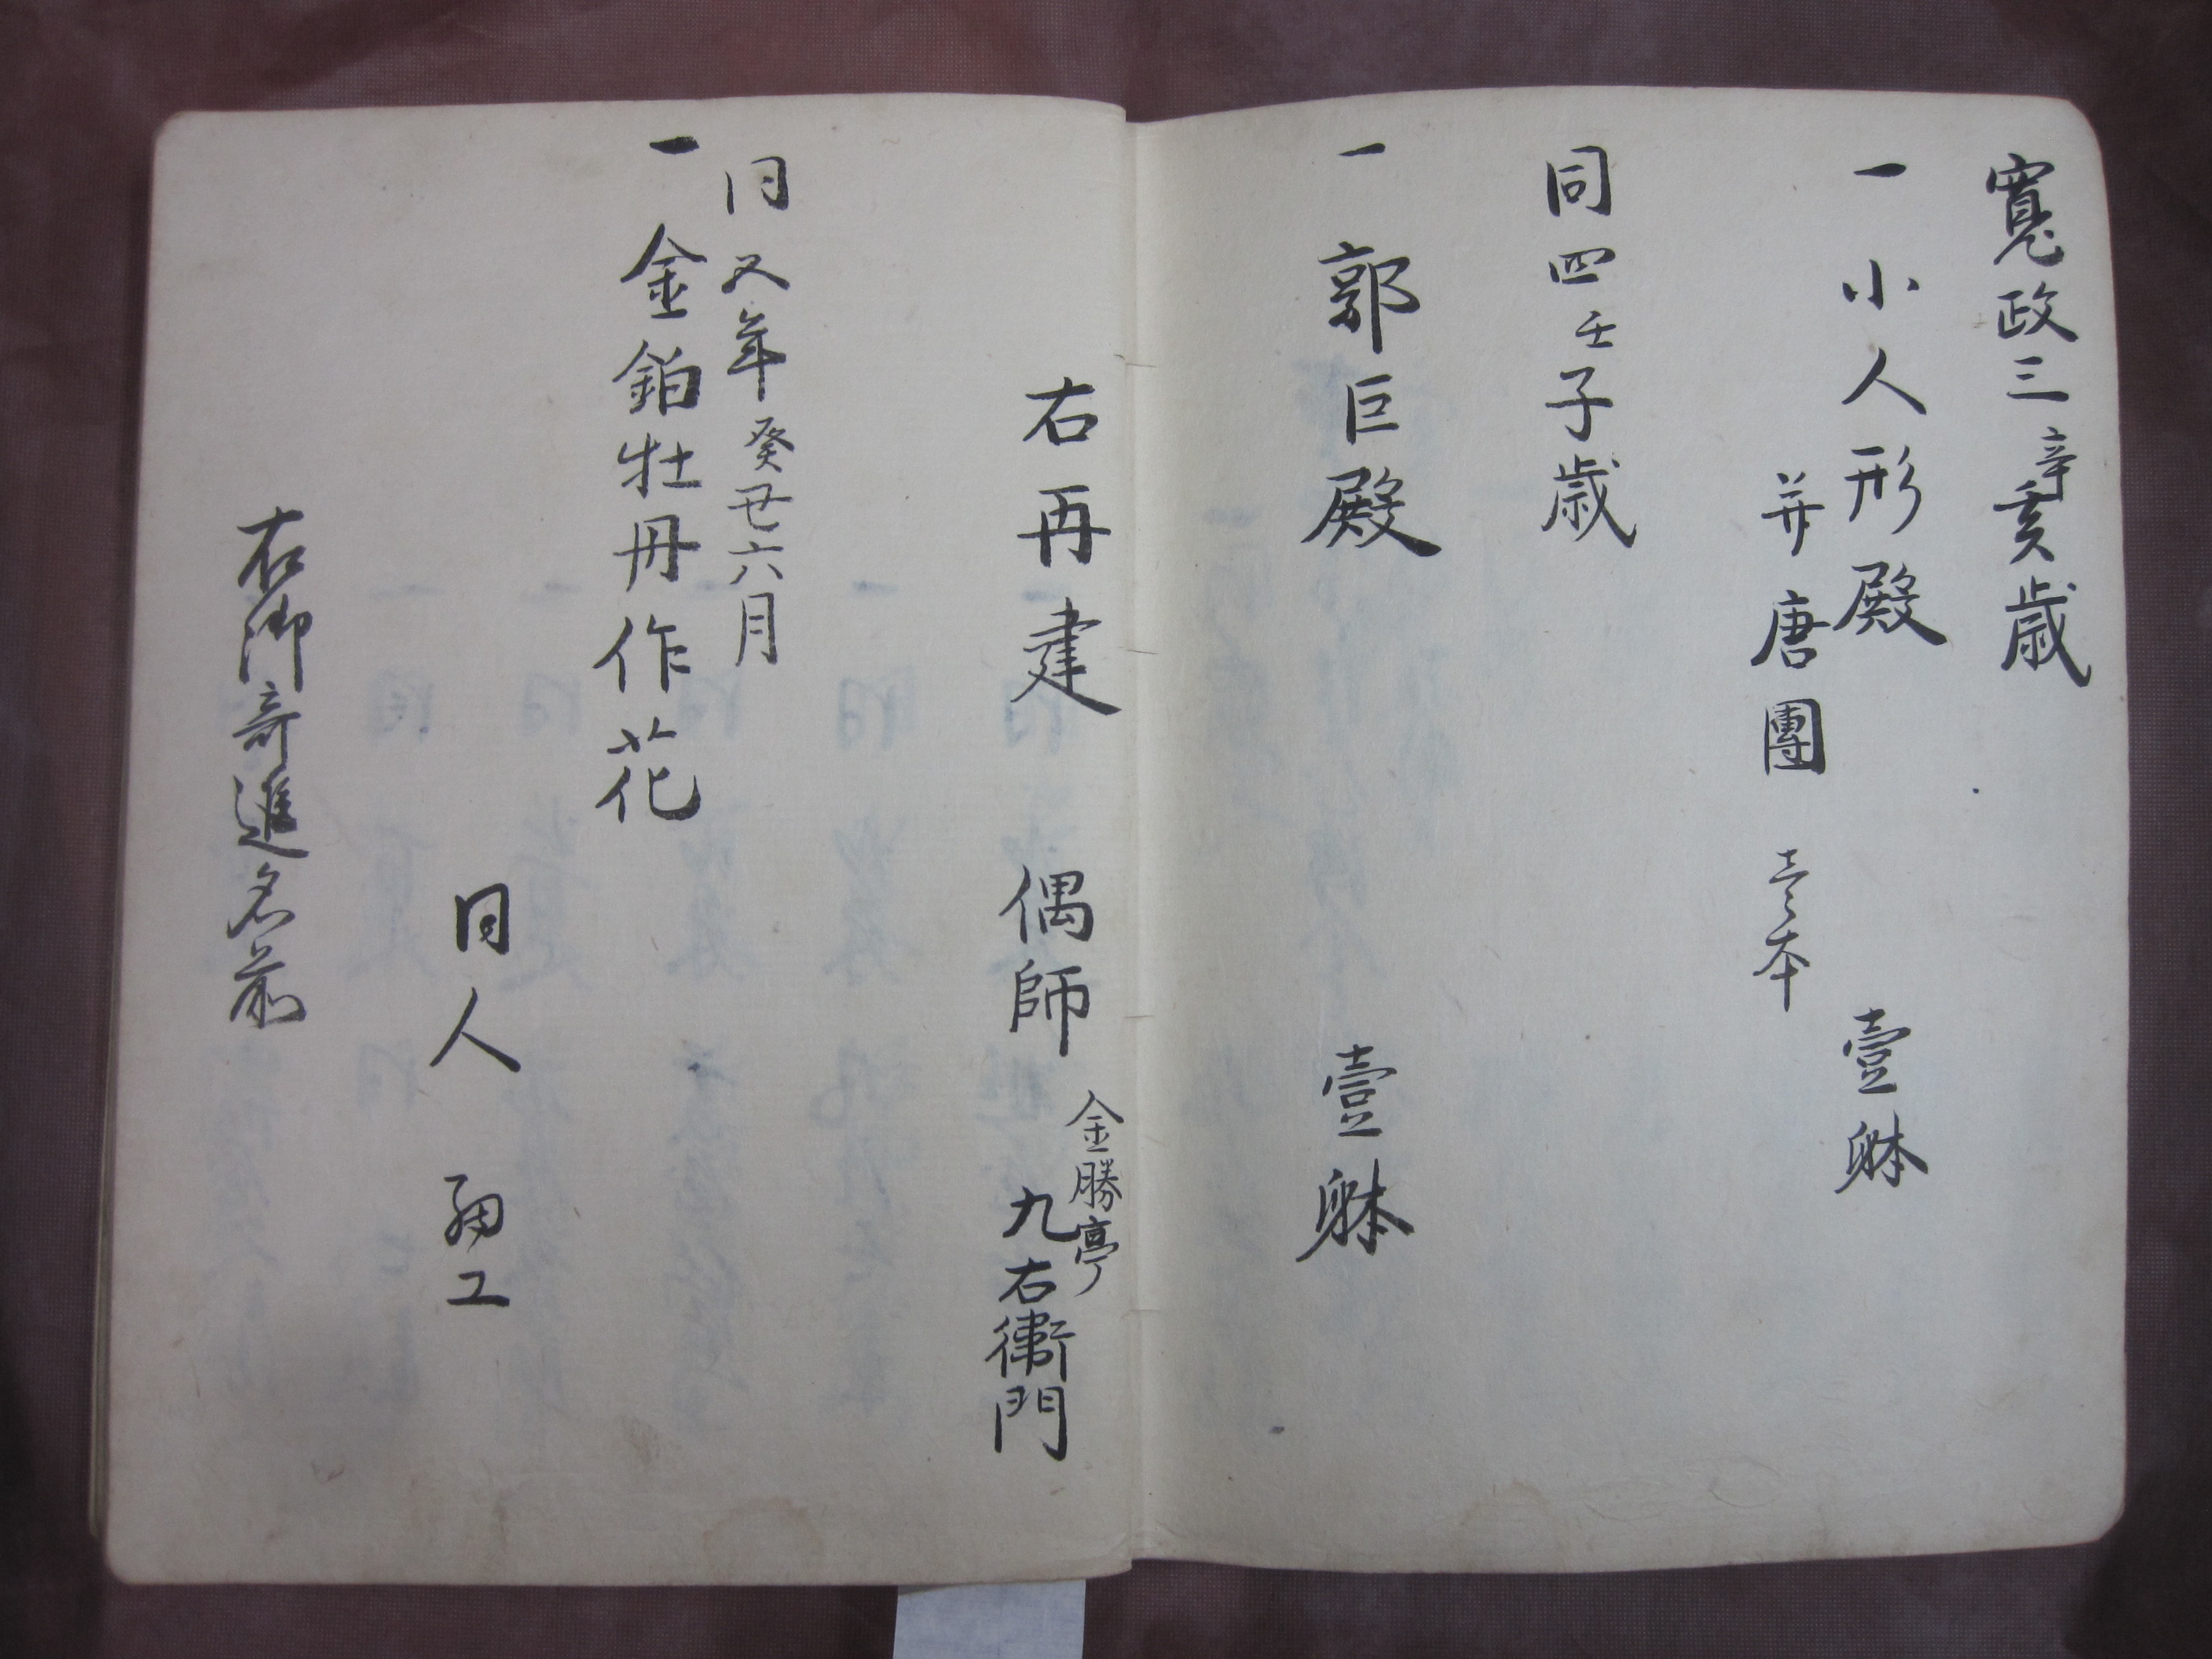 寛政三辛亥歳
一 小人形殿 壹躰
并唐團 壱本
同四壬子歳
一 郭巨殿 壹躰
右再建 偶師 金勝亭 九右衞門
同五年癸丑六月
一 金鉑牡丹作花
同人 細工
右御寄進名前